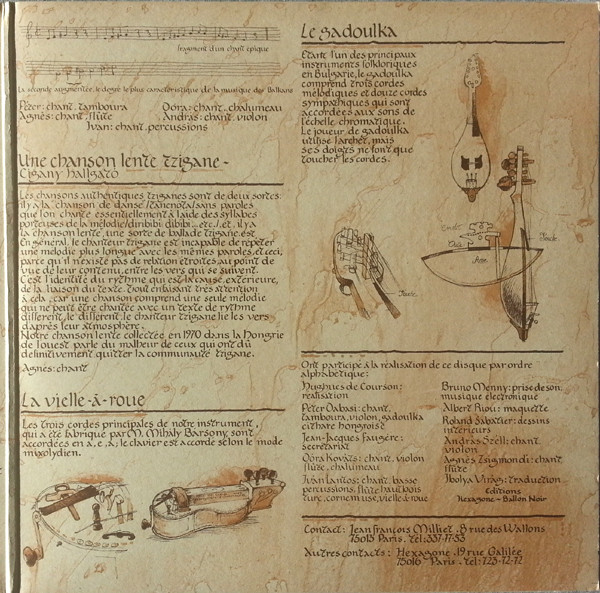 fragment d'un chant épique
La seconde augmentée, le degré le plus caractéristique de la musique des Balkans
Péter: chant, tamboura
Dóra: chant, chalumeau
Agnès: chant, flûte
András: chant, violon
Ivan: chant, percussions
Une chanson lente tzigane -
Cigány hallgató
Les chansons authentiques tziganes sont de deux sortes:
il y a la chanson de danse /Tánenóta/sans paroles
que l'on chante essentiellement à l'aide des syllabes
porteuses de la mélodie/diribibi dibibi... etc./.et, il y a
la chanson lente, une sorte de ballade tzigane.est
En général, le chanteur tzigane est incapable de répéter
une mélodie plus longue avec les mêmes paroles, et ceci,
parce qu'il n'existe pas de relation étroites au point de
vue de leur contenu, entre les vers qui se suivent.
C'est l'identité du rythme qui est la cause, extérieure,
de la liaison du texte. Tout enfaisant très attention
à cela, car une chanson comprend une seule mélodie
qui ne peut être chantée avec un texte de rythme
différent, le chanteur tzigane lie les vers
d'après leur atmosphère.
Notre chanson lente collectée en 1970 dans la Hongrie
de l'ouest parle du malheur de ceux qui ont dû
définitivement quitter la communauté tzigane.
Agnès: chant
La vielle-à-roue
Les trois cordes principales de notre instrument,
qui a été fabriqué par M. Mihály Barsony sont
accordées en a, e, A; le clavier est accordé selon le mode
mixolydien.
Le gadoulka
Etant l'un des principaux
instruments folkloriques
en Bulgarie, le gadoulka
comprend trois cordes
mélodiques et douze cordes
sympathiques qui sont
accordées aux sons de
l'échelle chromatique.
Le joueur de gadoulka
utilise l'archet, mais
ses doigts ne font que
toucher les cordes.
Ont participé à la réalisation de ce disque par ordre
alphabétique:
Hughues de Courson:
réalisation
Péter Dabasi: chant,
tamboura, violon, gadoulka
cithare hongroise
Jean-Jacques Faugère:
secrétariat
Dóra Kováts: chant, violon
flûte, chalumeau
Iván Lantos: chant, basse
percussions, flûte hautbois
turc, cornemuse, vielle-à-roue
Bruno Menny: prise de son
musique électronique
Albert Riou: maquette
Roland Sabatier: dessins
intérieurs
András Széll: chant
violon
Agnès Zsigmondi: chant
flûte
Ibolya Virág: traduction
Editions
Hexagone - Ballon Noir
Contact: Jean François Milliet. 8 rue des Wallons
75013 Paris. tél: 337-17-53
Autres contacts: Hexagone. 19 rue Galilée
75016 Paris. tél: 723-72-72